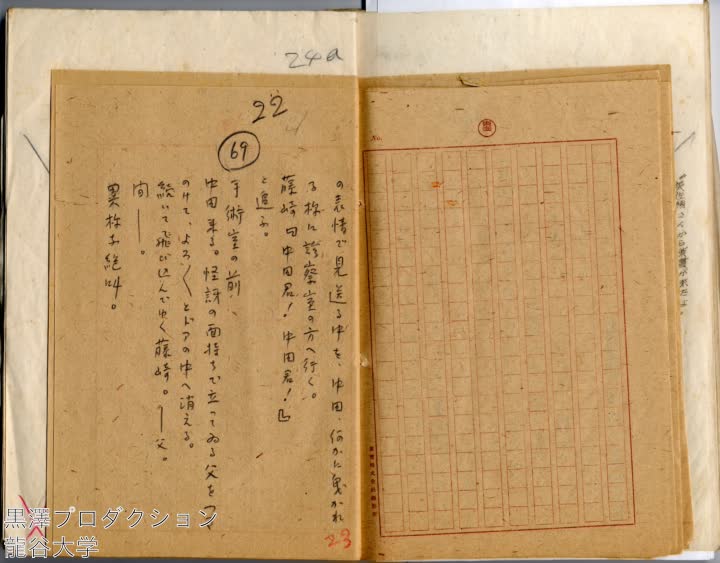 24a
22
69
の表情で見送る中を、中田、何かに曳かれ
る様に診察室の方へ行く。
藤崎「中田君！中田君！」
と追ふ。
手術室の前
中田来る。怪訝の面持ちで立ってゐる父をつき
のけて、よろ〱とドアの中へ消える。
続いて飛び込んでゆく藤崎。―父。
間――。
異様な絶叫。
23
No.
さんから電報が来たよ。
黒澤プロダクション
龍谷大学